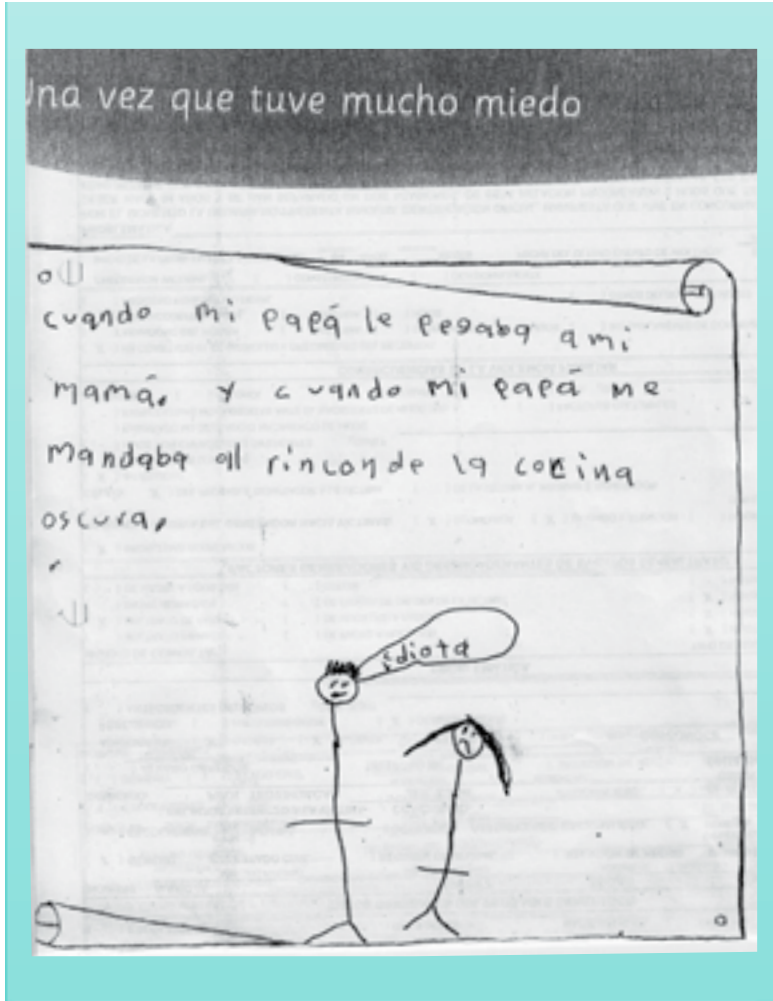 Una vez que tuve mucho miedo
cuando mi papá le pegaba a mi
mamá. y cuando mi papá me
mandaba al rincon de la cocina
oscura.
idiota